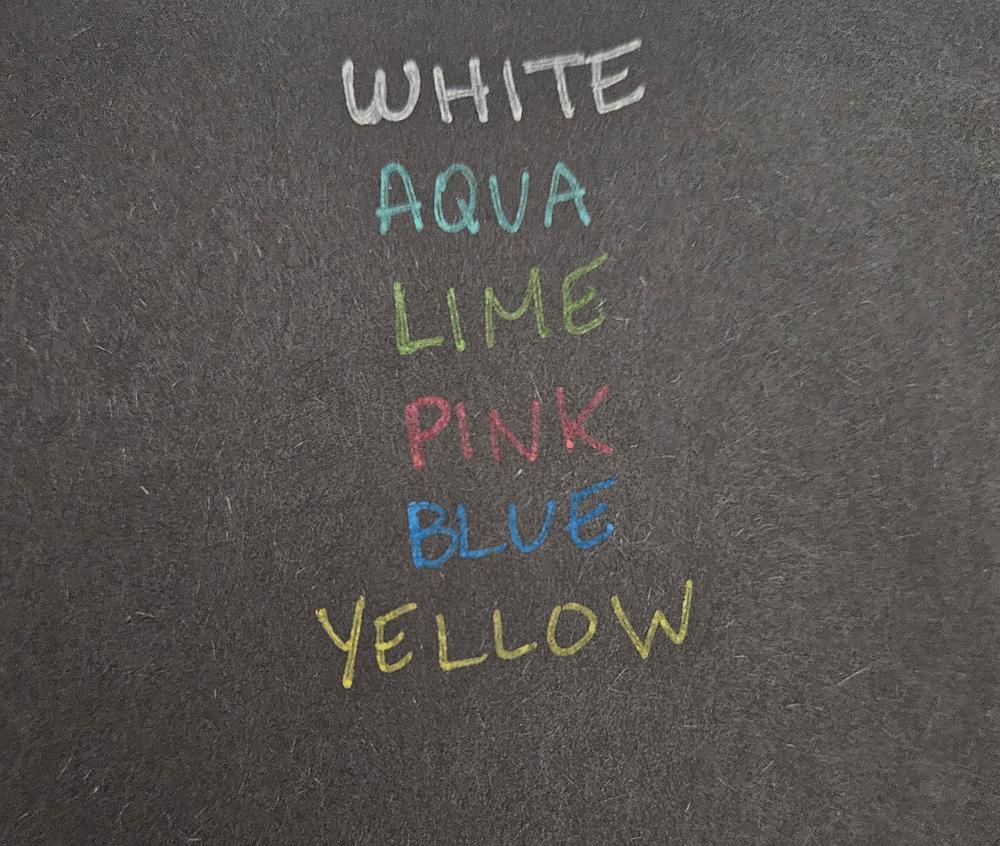 WHITE
AQUA
LIME
PINK
BLUE
YELLOW